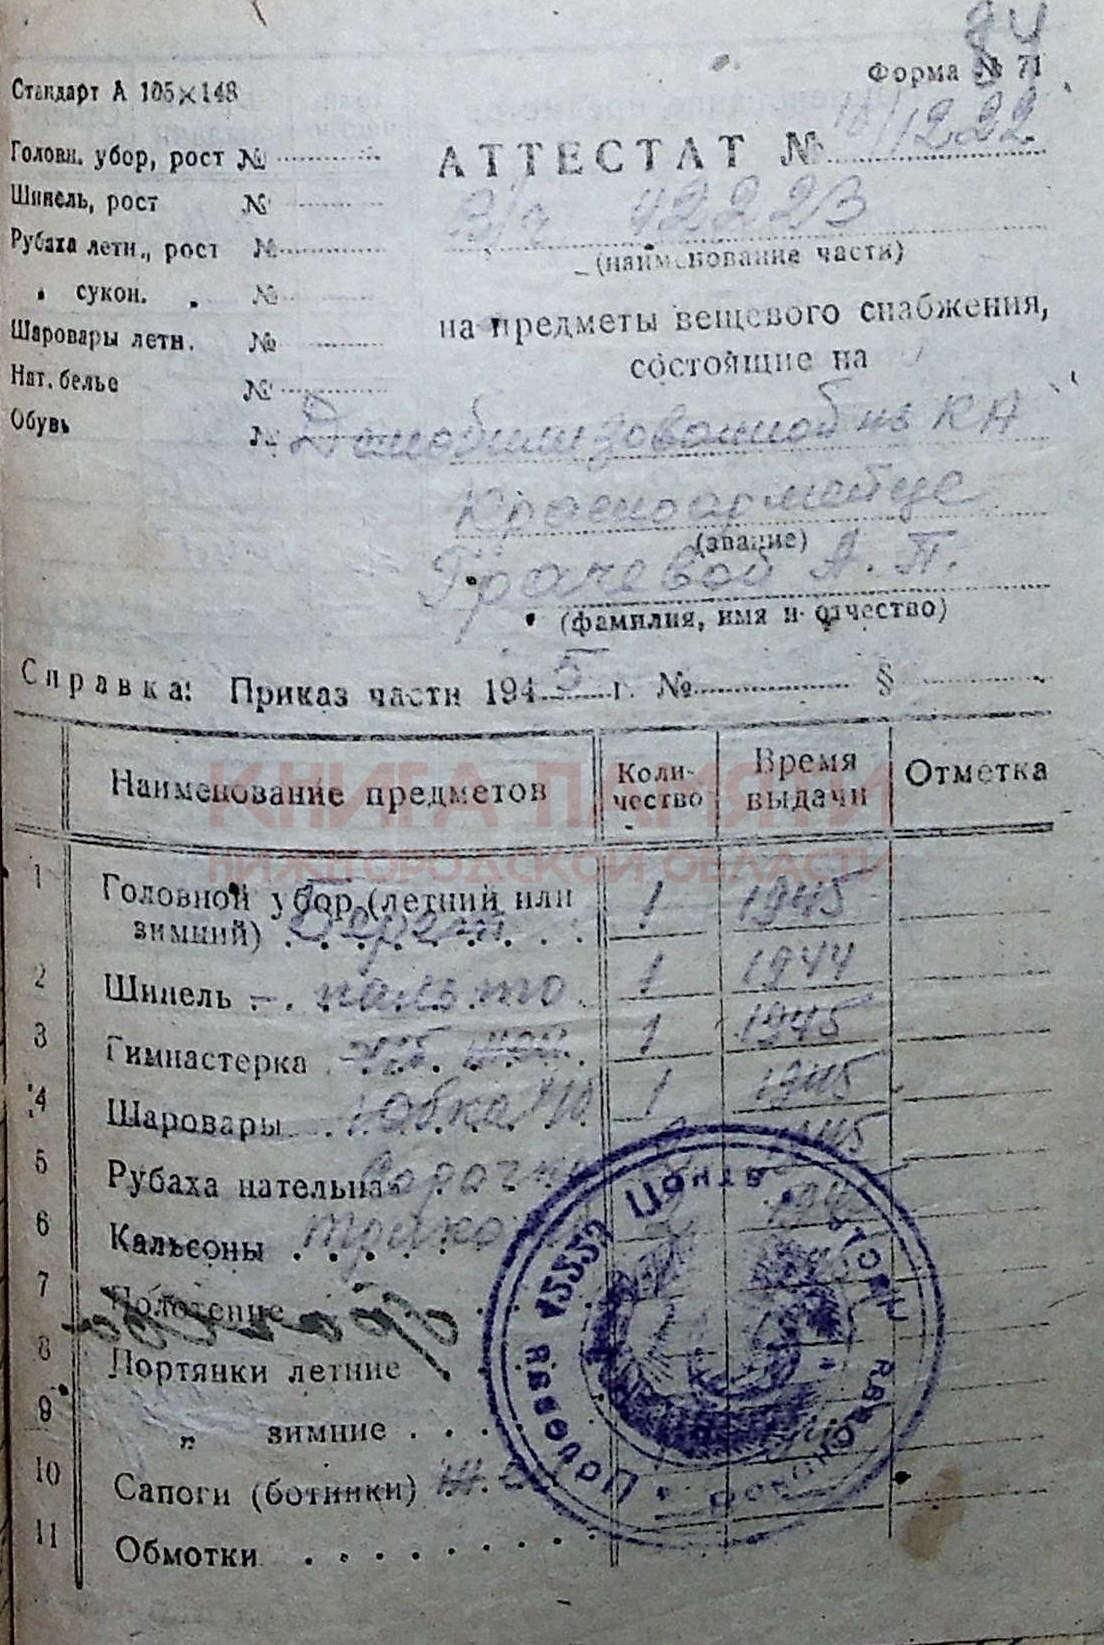 84
Стандарт А 105×148
Форма № 71
Головн. убор, рост №
АТТЕСТАТ № 10/1222
Шинель, рост №
в/ч 42223
Рубаха летн., рост №
(наименование части)
" сукон. " №
на предметы вещевого снабжения,
Шаровары летн. №
состоящие на
Нат. белье №
Обувь №
Демобилизованной из КА
Красноармейце
(звание)
Грачевой А. П.
(фамилия, имя и отчество)
Справка: Приказ части 1945 г. № §
Наименование предметов Количество Время выдачи Отметка
КНИГА ПАМЯТИ
НИЖЕГОРОДСКОЙ ОБЛАСТИ
1 Головной убор (летний или
зимний) Берет 1 1945
2 Шинель - пальто 1 1944
3 Гимнастерка х/б 1 1945
4 Шаровары Юбка 1 1945
5 Рубаха нательная
6 Кальсоны
7 Полотенце
8 Портянки летние
9 " зимние
10 Сапоги (ботинки)
11 Обмотки